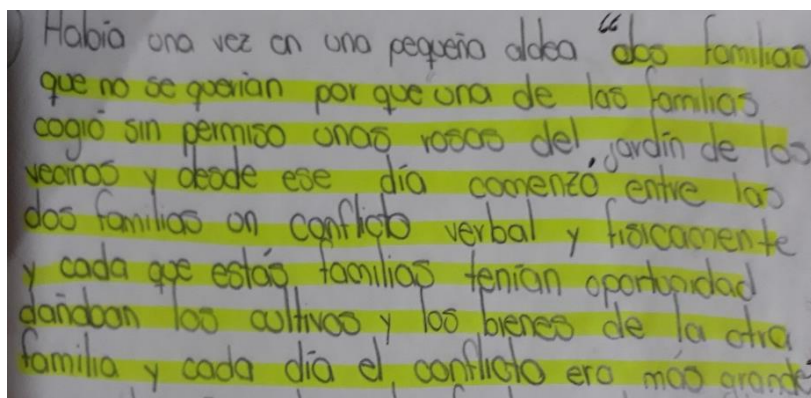 Había una vez en una pequeña aldea "dos familias
que no se querían por que una de las familias
cogió sin permiso unas rosas del jardín de los
vecinos y desde ese día comenzó entre las
dos familias un conflicto verbal y físicamente
y cada que estás familias tenían oportunidad
dañaban los cultivos y los bienes de la otra
familia y cada día el conflicto era más grande"